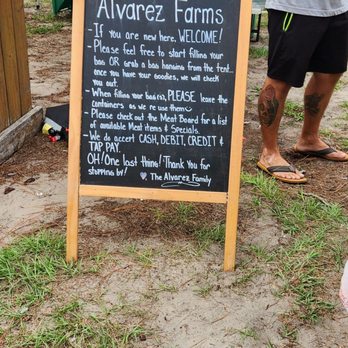 Alvarez Farms
- If you are new here, WELCOME!
- Please feel free to start filling your
bag OR grab a bag hanging from the tent...
once you have your goodies, we will check
you out.
- When filling your bag(s), PLEASE leave the
containers as we re use them
- Please check out the Meat Board for a list
of available Meat items & Specials.
- We do accept CASH, DEBIT, CREDIT &
TAP PAY.
OH! One last thing! Thank you for
stopping by! The Alvarez Family